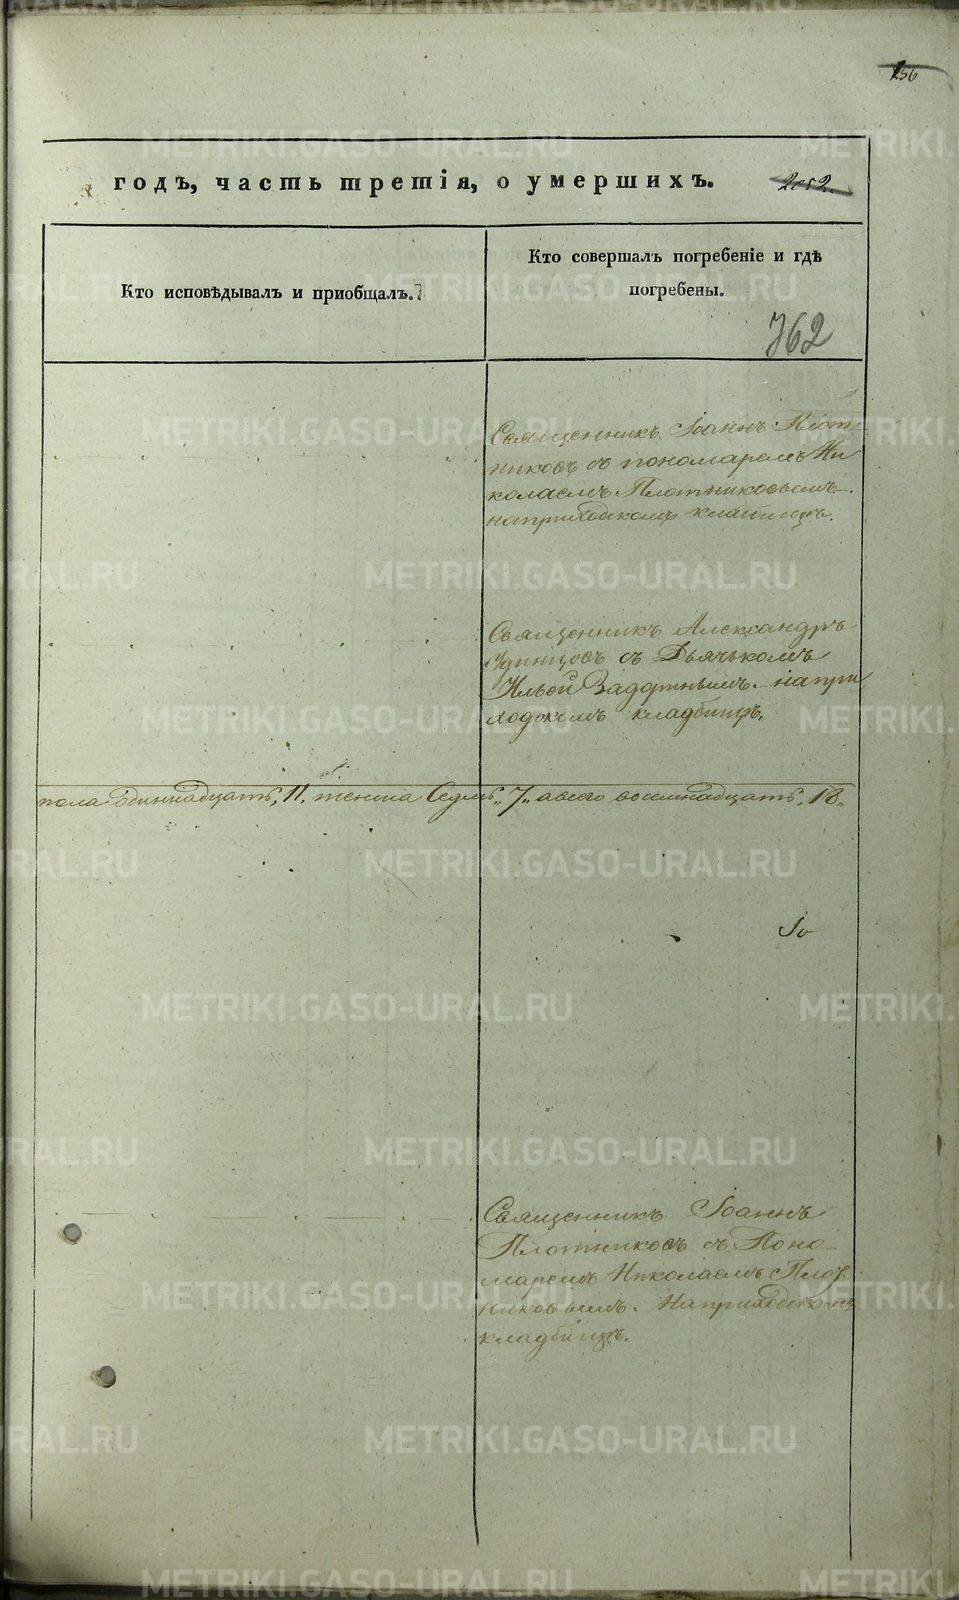 156
годъ, часть третія, о умершихъ.
Кто исповѣдывалъ и пріобщалъ.
Кто совершалъ погребеніе и гдѣ
погребены.
762
Священникъ Іоаннъ Плот
никовъ съ пономаремъ Ни
колаемъ Плотниковымъ
на приходскомъ кладбищѣ.
Священникъ Александръ
Удинцовъ съ Дьячькомъ
Ильей на при
ходском кладбищѣ.
пола одиннадцать, 11, женска Седмь, 7, а всего восемнадцать, 18.
Священникъ Іоаннъ
Плотниковъ съ Поно
маремъ Николаемъ Плот
никовымъ. На приходскомъ
кладбищѣ.
METRIKI.GASO-URAL.RU